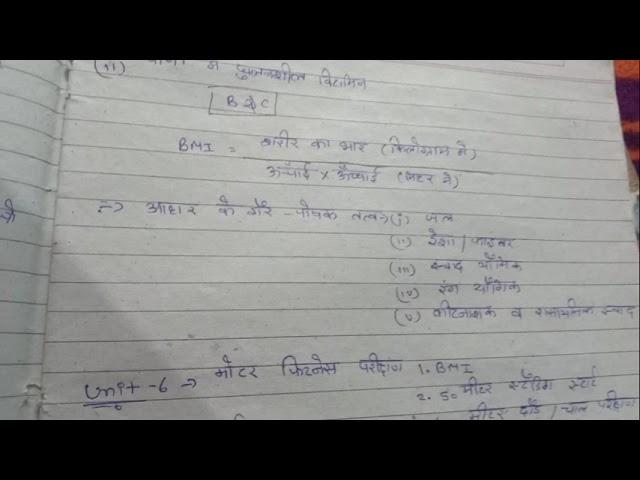 (ii) में घुलनशील विटामिन
B & C
BMI = शरीर का भार (किलोग्राम में)
ऊँचाई x ऊँचाई (मीटर में)
=> आहार के गैर - पोषक तत्व (i) जल
(ii) रेशा / फाइबर
(iii) स्वाद यौगिक
(iv) रंग यौगिक
(v) कीटनाशक व रासायनिक स्वाद
Unit -6 -> मोटर फिटनेस परीक्षण 1. BMI
2. 50 मीटर स्टैंडिंग स्टार्ट
मीटर दौड़ / चाल परीक्षण